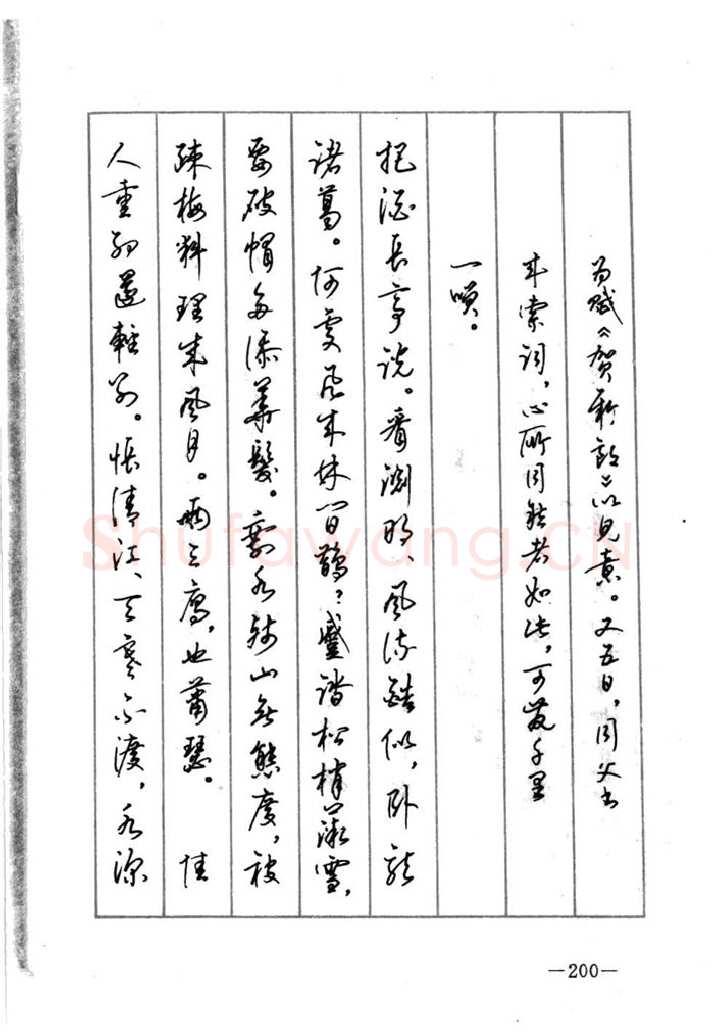 为赋《贺新郎》以见意。又五日，同父书
来索词，心所同然者如此，可发千里
一笑。
把酒长亭说。看渊明、风流酷似，卧龙
诸葛。何处飞来林间鹊？蹙踏松梢微雪，
要破帽多添华发。剩水残山无态度，被
疏梅料理成风月。两三雁，也萧瑟。 佳
人重约还轻别。怅清江、天寒不渡，水深
—200—
Shufawang.CN